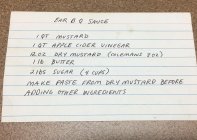 BAR B Q SAUCE
1 QT MUSTARD
1 QT APPLE CIDER VINEGAR
12 OZ DRY MUSTARD (COLEMANS 2 OZ)
1 lb BUTTER
2 lbs SUGAR (4 CUPS)
MAKE PASTE FROM DRY MUSTARD BEFORE
ADDING OTHER INGREDIENTS